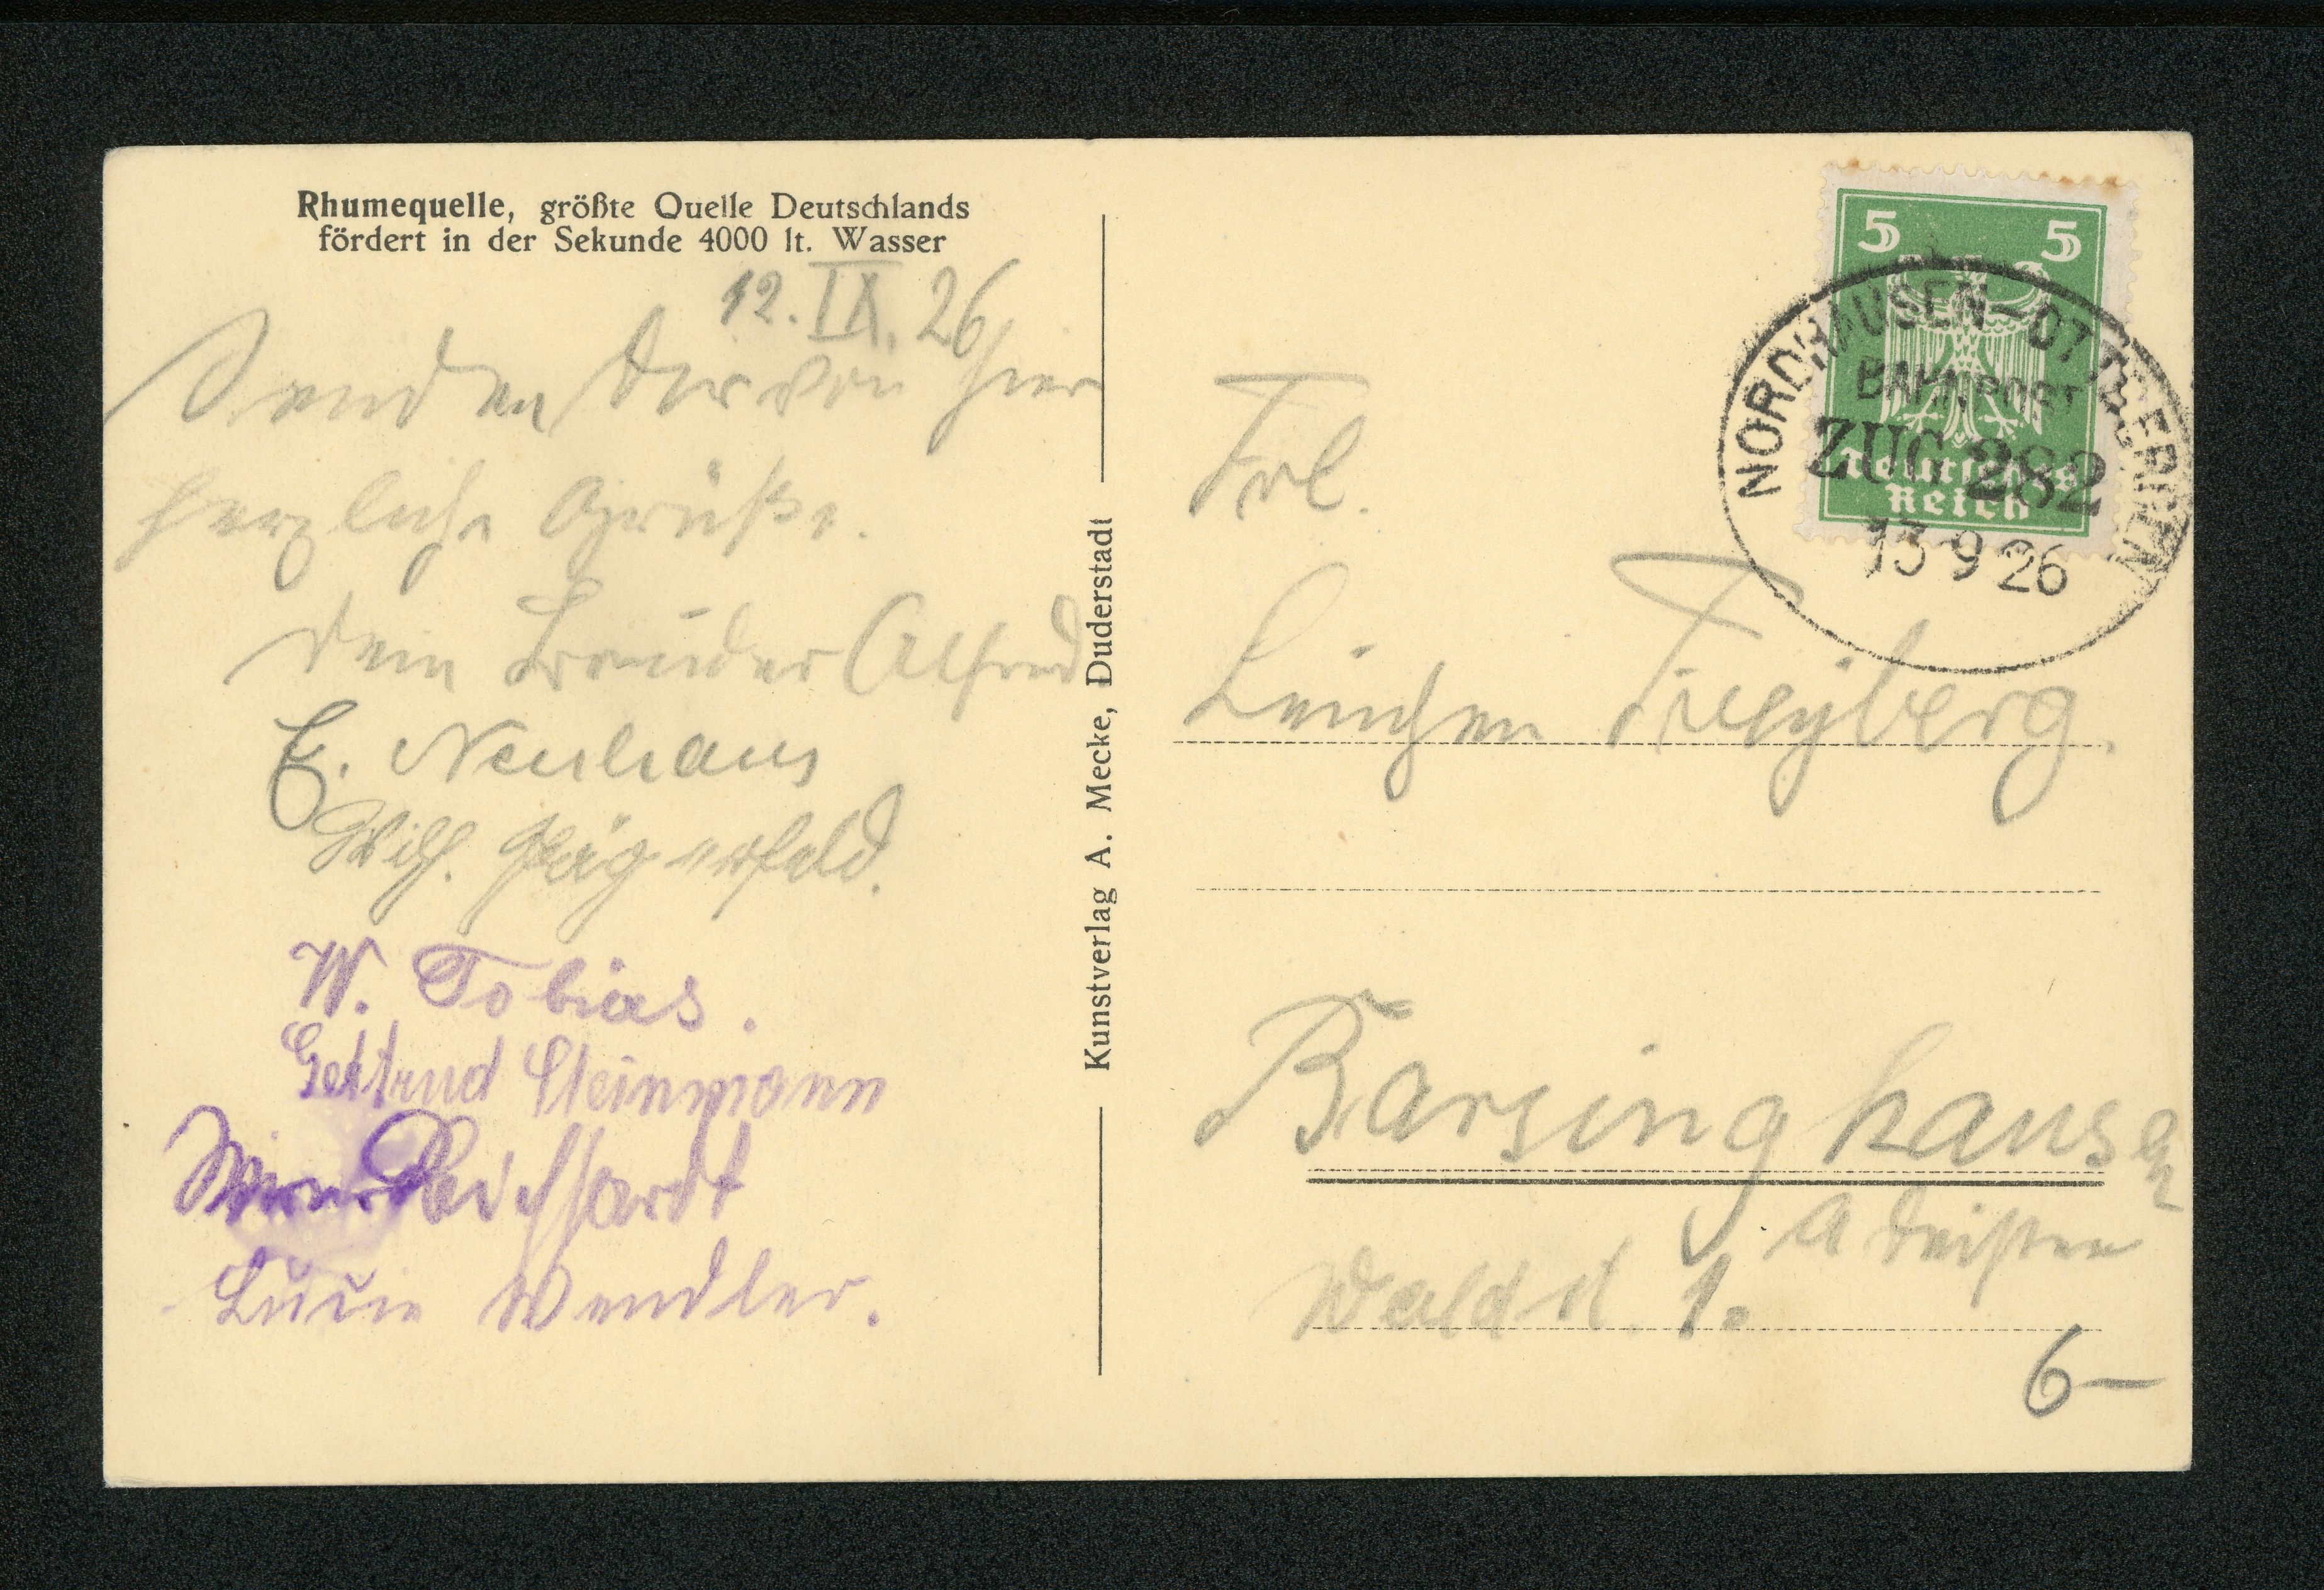 Rhumequelle, größte Quelle Deutschlands
fördert in der Sekunde 4000 lt. Wasser
12. IX. 26
Senden Dir von hier
herzliche Grüße.
Dein Bruder Alfred
E. Neuhaus
Wilh. Jägerfeld.
W. Tobias.
Gertrud Steinmann
Reichhardt
Lucie Wendler.
Kunstverlag A. Mecke, Duderstadt
5 5
Deutsches
Reich
NORDHAUSEN-OTTBERGEN
BAHNPOST
ZUG 282
13 9 26
Frl.
Leinchen
Barsinghausen
a Deister
Wald st. 1.
6-